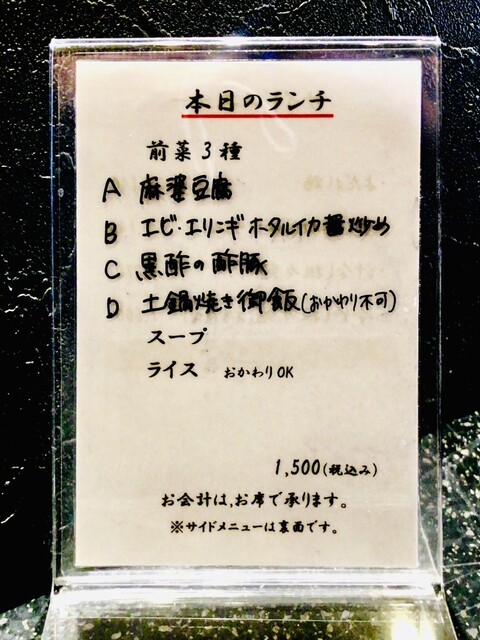 本日のランチ
前菜3種
A 麻婆豆腐
B エビ・エリンギ ホタルイカ醤炒め
C 黒酢の酢豚
D 土鍋焼き御飯(おかわり不可)
スープ
ライス おかわりOK
1,500(税込み)
お会計は、お席で承ります。
※サイドメニューは裏面です。